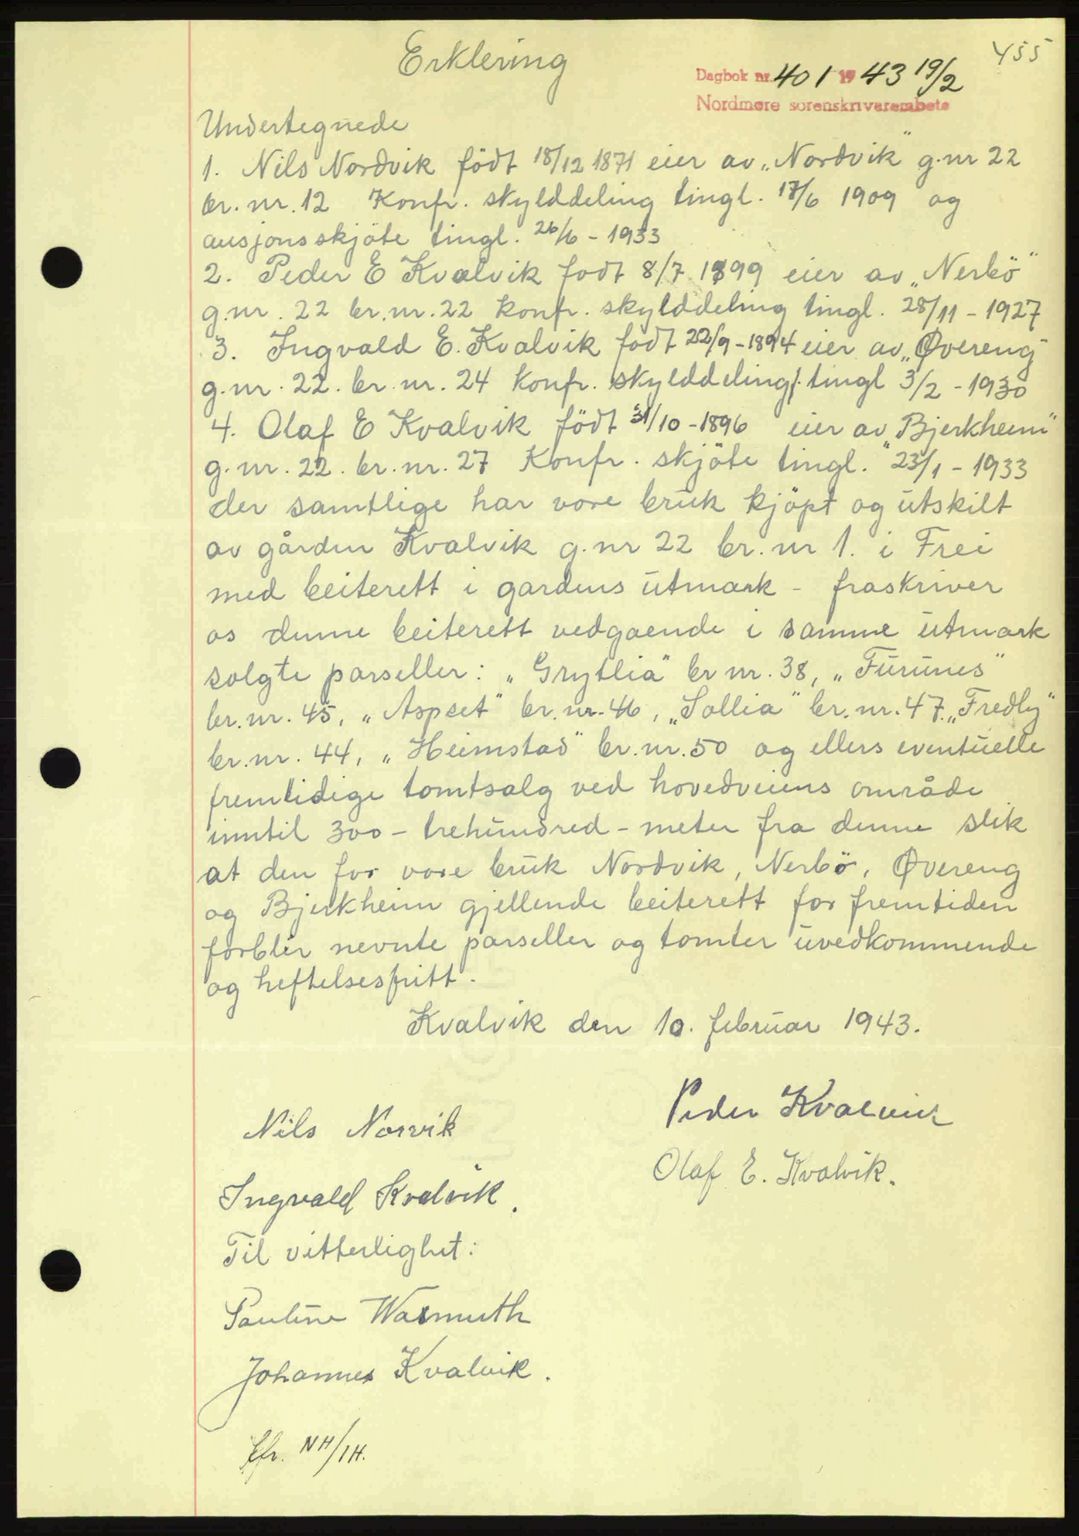 455
Erklering
Dagbok nr. 401 1943 19/2
Nordmøre sorenskriverembete
Undertegnede
1. Nils Nordvik födt 18/12 1871 eier av „Nordvik" g.nr 22
br. nr. 12 Konfr. skylddeling tingl. 17/6 1909 og
ausjonsskjöte tingl. 26/6 - 1933
2. Peder E Kvalvik födt 8/7 1899 eier av „Nerbö"
g.nr. 22 br.nr. 22 konfr. skylddeling tingl. 28/11 - 1927
3. Ingvald E. Kvalvik födt 22/9 - 1894 eier av „Øvereng"
g.nr. 22. br. nr. 24 konfr. skylddeling tingl 3/2 - 1930
4. Olaf E Kvalvik födt 31/10 - 1896 eier av „Bjerkheim"
g.nr. 22. br. nr. 27 Konfr. skjöte tingl. 23/1 - 1933
der samtlige har vore bruk kjöpt og utskilt
av gården Kvalvik g.nr 22 br. nr 1. i Frei
med beiterett i gardens utmark - fraskriver
os denne beiterett vedgaende i samme utmark
solgte parseller: „Grytlia" br nr. 38, „Furunes"
br. nr. 45, „Aspset" br. nr. 46, „Sollia" br. nr. 47 „Fredly"
br. nr. 44, „Heimstad" br. nr. 50 og ellers eventuelle
fremtidige tomtsalg ved hovedveiens område
inntil 300 - trehundred - meter fra denne slik
at den for vore bruk Nordvik, Nerbö, Øvereng
og Bjerkheim gjellende beiterett for fremtiden
forblir nevnte parseller og tomter uvedkommende
og heftelsesfritt.
Kvalvik den 10. februar 1943.
Peder Kvalvik
Nils Norvik
Olaf E. Kvalvik.
Ingvald Kvalvik.
Til vitterlighet:
Pauline Warmuth
Johannes Kvalvik.
Efr. NH/IH.